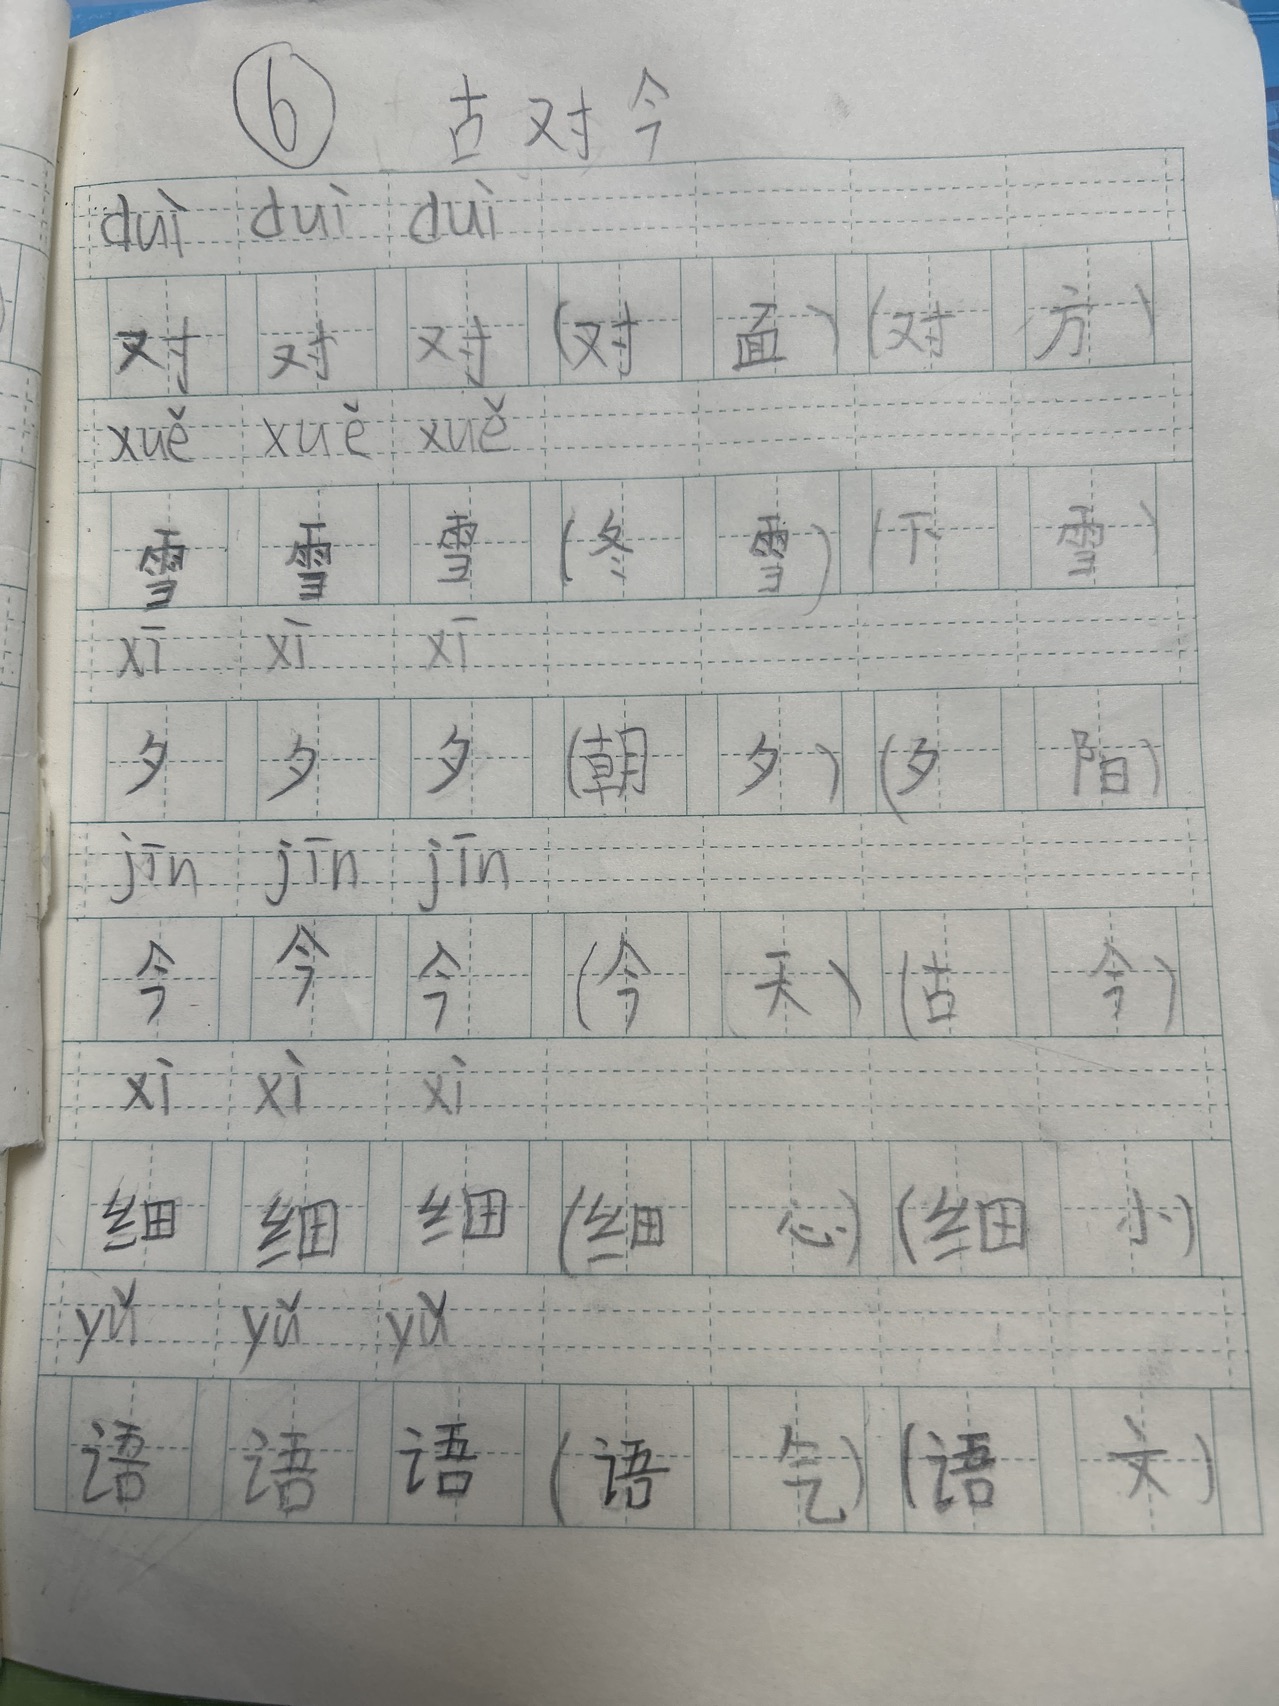 ⑥ 古对今
duì duì duì
对 对 对 (对 面) (对 方)
xuě xuě xuě
雪 雪 雪 (冬 雪) (下 雪)
xī xì xī
夕 夕 夕 (朝 夕) (夕 阳)
jīn jīn jīn
今 今 今 (今 天) (古 今)
xì xì xì
细 细 细 (细 心) (细 小)
yǔ yǔ yǔ
语 语 语 (语 气) (语 文)